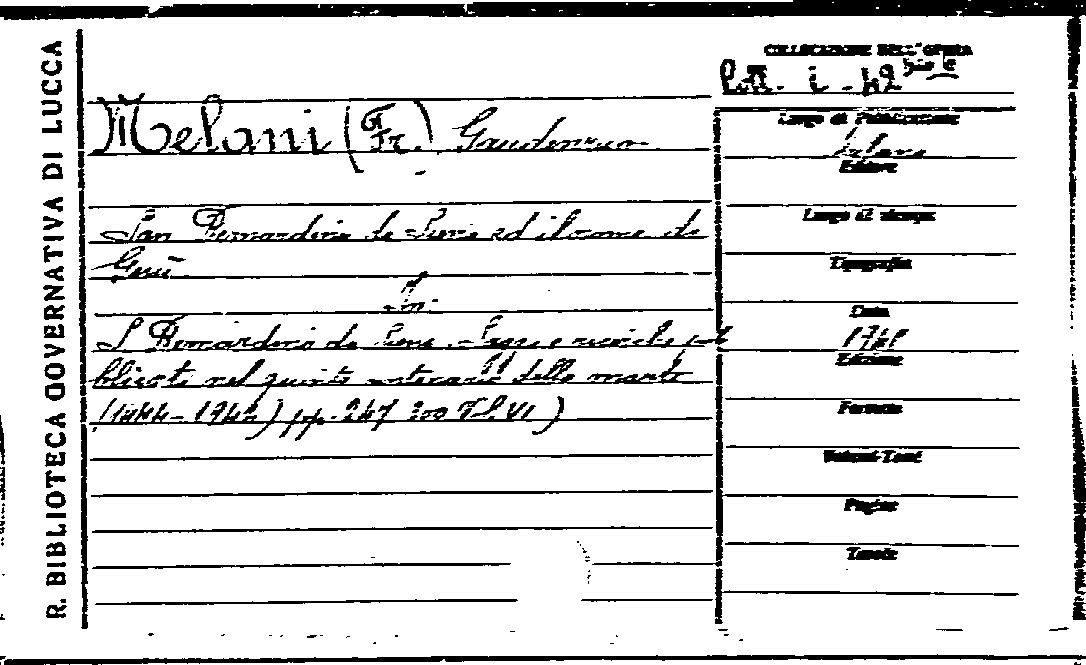 R. BIBLIOTECA GOVERNATIVA DI LUCCA
COLLOCAZIONE DELL'OPERA
i - 42
Melani (Fr.) Gaudenzio
San Bernardino da Siena ed il nome di
Gesù
In:
S. Bernardino da Siena. Saggi e ricerche pub
blicati nel quinto centenario della morte
(1444-1944) pp. 247 300 T.I.VI)
Luogo di Pubblicazione
Milano
Editore
Luogo di stampa
Tipografia
Data
Edizione
Formato
Volumi-Tomi
Pagine
Tavole